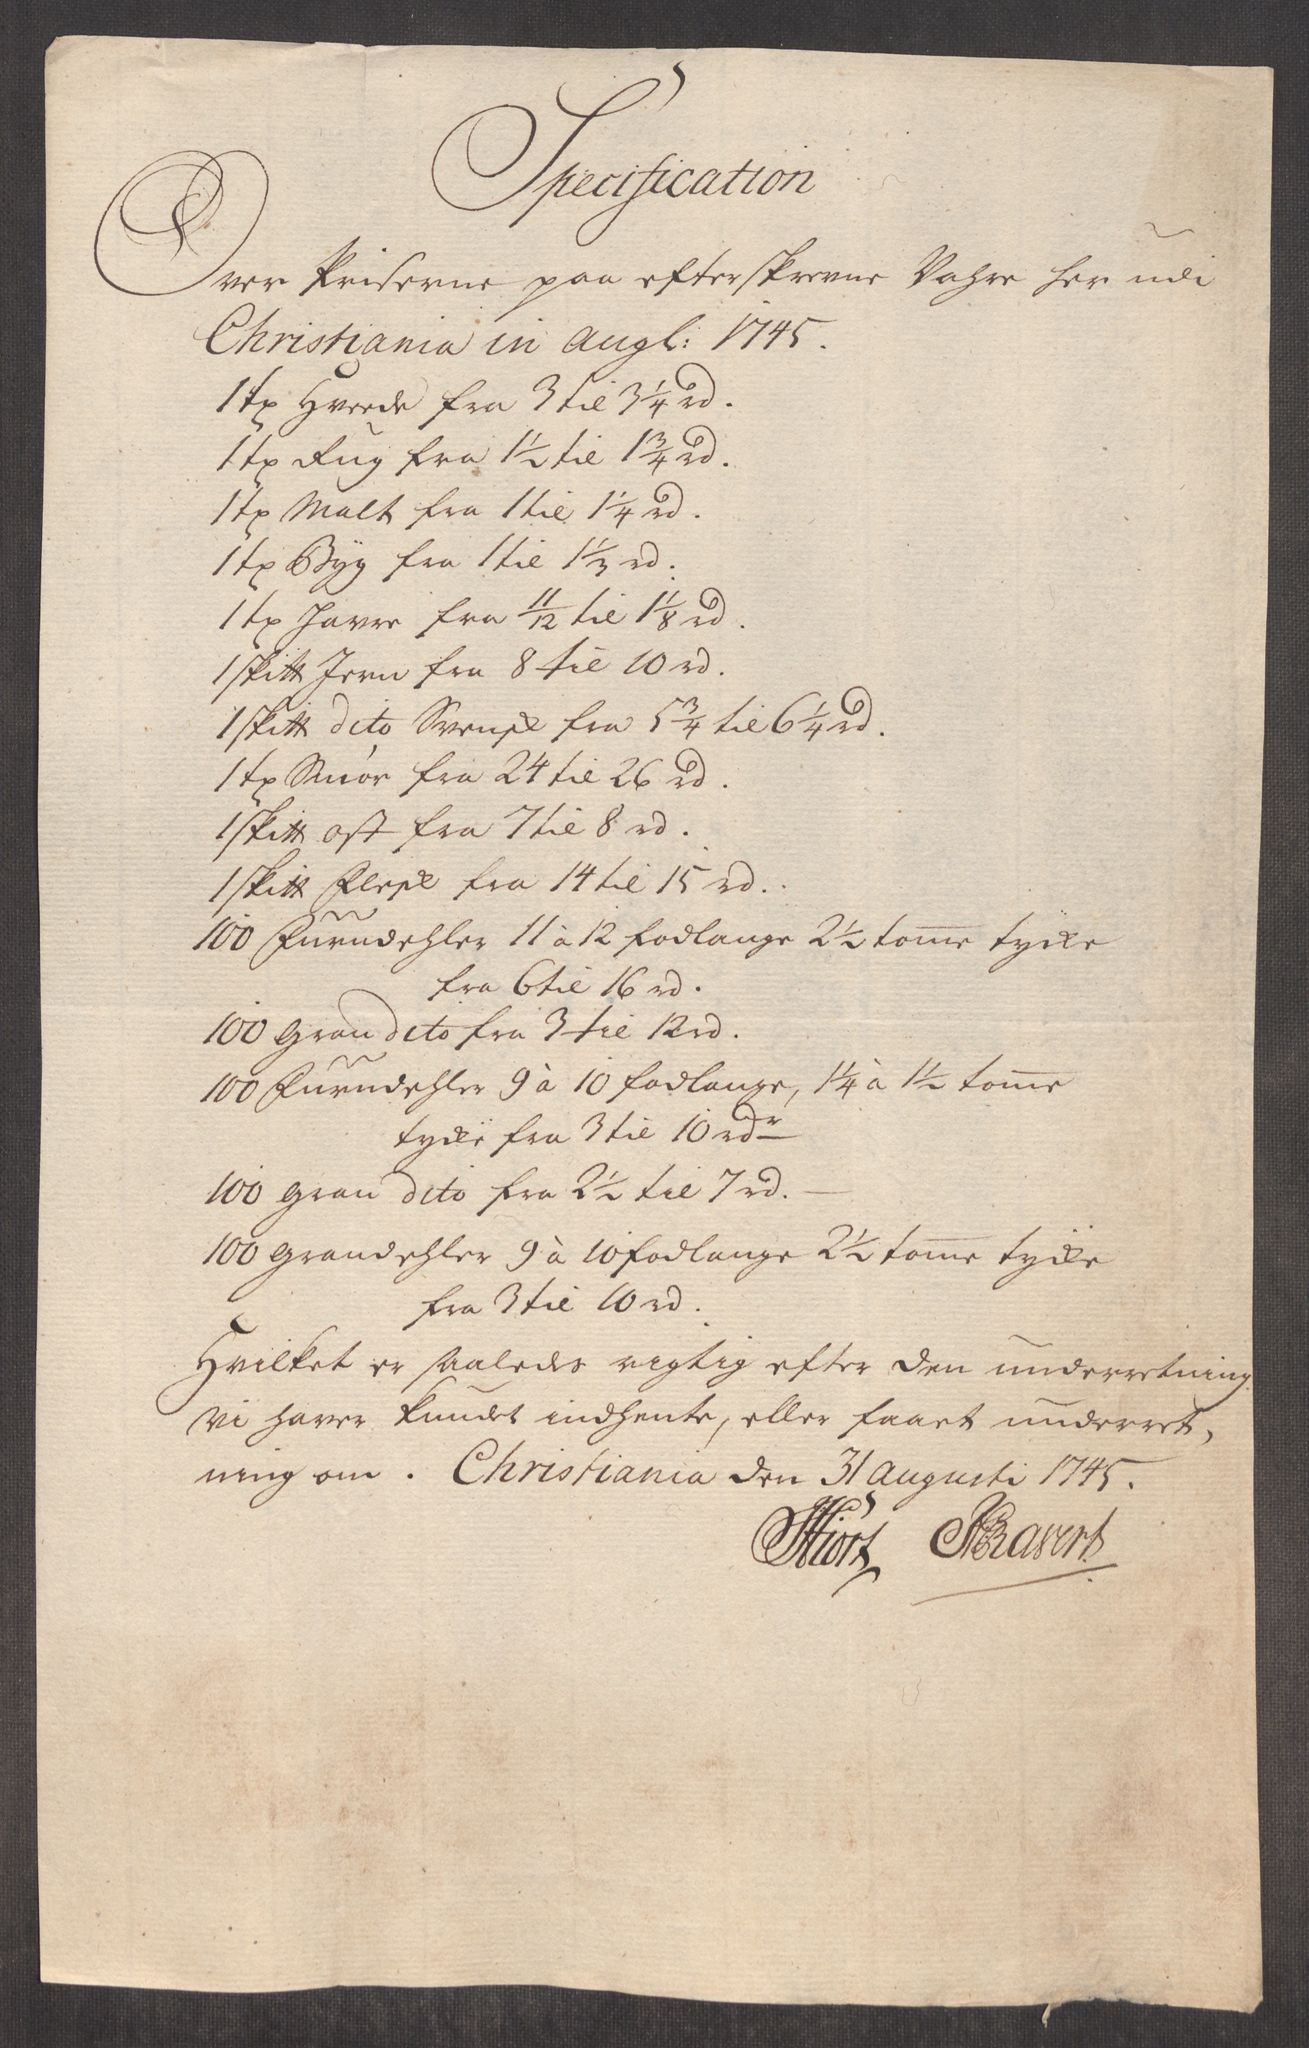 Specification
Over Priserne paa efterskrevne Vahre her udi
Christiania in Augl: 1745.
1 tr Hvede fra 3 til 3 1/4 rd.
1 tr Rug fra 1 1/2 til 1 3/4 rd.
1 tr Malt fra 1 til 1 1/4 rd.
1 tr Byg fra 1 til 1 1/3 rd.
1 tr Havre fra 11/12 til 1 1/8 rd.
1 sk℔ Jern fra 8 til 10 rd.
1 sk℔ dito Svensk fra 5 3/4 til 6 1/4 rd.
1 tr Smör fra 24 til 26 rd.
1 sk℔ ost fra 7 til 8 rd.
1 sk℔ Flesk fra 14 til 15 rd.
100 Furudehler 11 à 12 fodlange 2 1/2 tom̅e tycke
fra 6 til 16 rd.
100 Gran dito fra 3 til 12 rd.
100 Furudehler 9 à 10 fodlange, 1 1/4 à 1 1/2 tom̅e
tycke fra 3 til 10 rdr
100 gran dito fra 2 1/2 til 7 rd. —
100 Grandehler 9 à 10 fodlange 2 1/2 tom̅e tycke
fra 3 til 10 rd.
Hvilket er saaledes rigtig efter den underretning
vi haver kundet indhente, eller faaet underret,
ning om. Christiania den 31 Augusti 1745.
Hiort Ravert